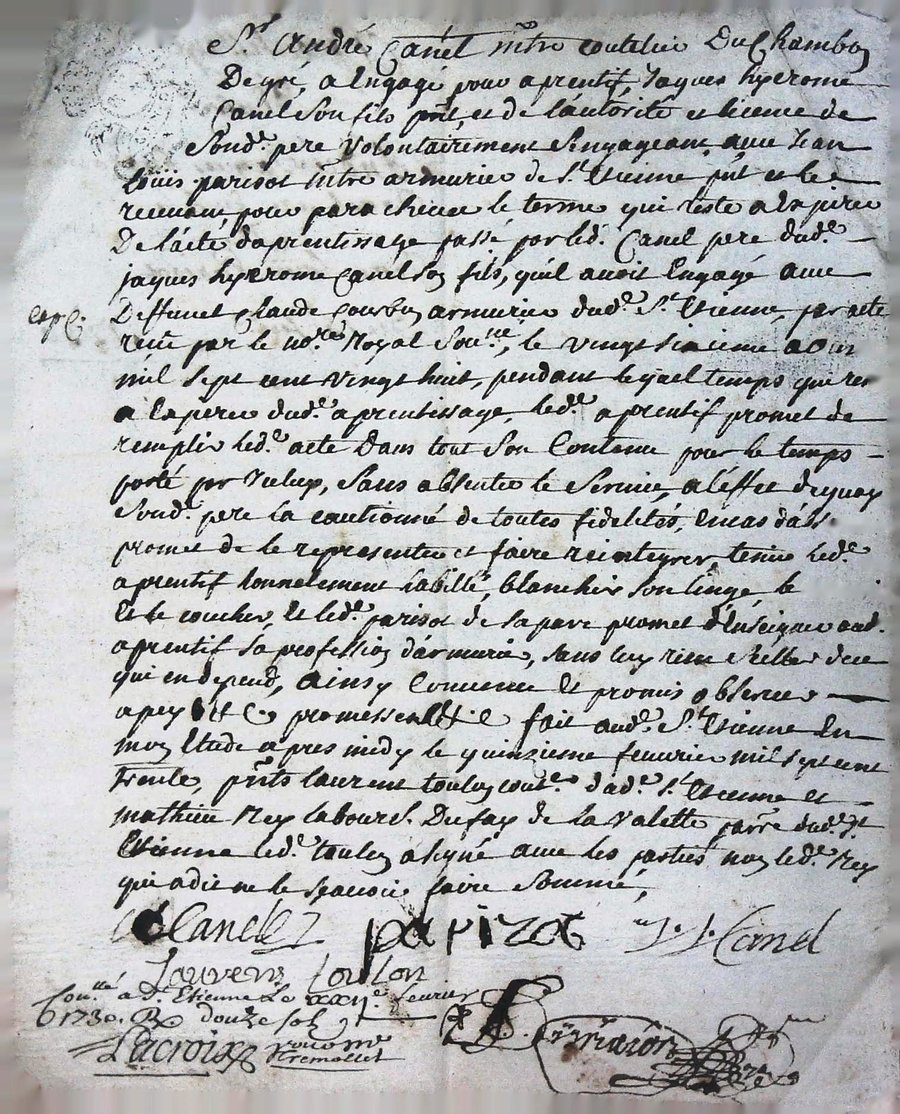 Sr André Canel mtre coutelier Du Chambon
De gré, a Engagé pour aprentif, Jaques hyerome
Canel Son fils pnt, et de l'autorité et licence de
Sond. pere Volontairement S'engageant, avec Jean
Loüis parizot mtre armurier de St Etienne pnt et le
recevant pour parachever le terme qui reste a Expirer
De l'acte d'aprentissage passé par led. Canel pere dud.
jaques hyerome Canel Son fils, qu'il avoit Engagé avec
Deffunct Claude Courbon armurier dud. St Etienne, par acte
exp.
reçu par le nore Royal Souné, le vingt sixieme aoust
mil sept cent vingt huit, pendant lequel temps qui res
a Expirer dud. aprentissage, led. aprentif promet de
remplir led. acte Dans tout Son Contenu pour le temps
porté par Iceluy, Sans absenter le Service, a l'éffet dequoy
Sond. pere l'a cautionné de toutes fidelités, En cas d'abs.
promet de le representer et faire reintegrer, tenir led.
aprentif honnetement habillé, blanchir Son linge le
Et le coucher, Et led. parizot de sa part promet d'Enseigner aud.
aprentif Sa profession d'armurier, sans luy rien Celler de ce
qui en depend, Ainsy Convenu Et promis observer
a peyne promesse fait aud. St Etienne En
mon Etude apres midy le quinzieme fevrier mil sept cent
trente, pnts laurent toulon cout. dud. St Etienne et
mathieu Rey labour. Du fay de la Valette parre dud. St
Etienne led. toulon a signé avec les parties non led. Rey
qui a dit ne le sçavoir faire Sommé,
Canel parizot J. J. Canel
Laurens toulon
Con.llé a St Etienne Le XXVIe fevrier
1730. R douze sols
Lacroix tremollet